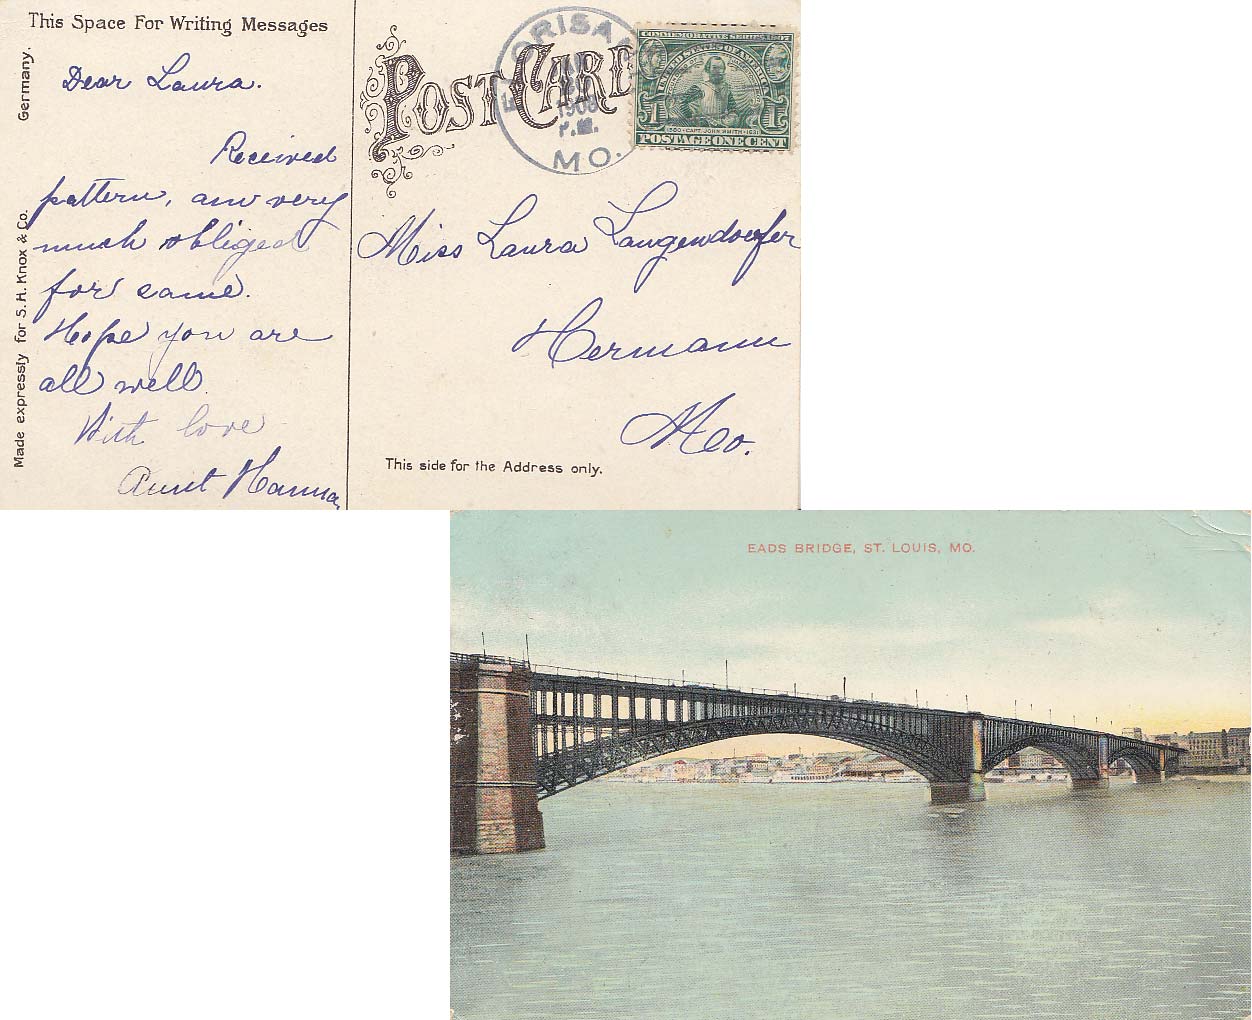 This Space For Writing Messages
Germany.
Made expressly for S. H. Knox & Co.
Dear Laura.
Received
pattern, am very
much obliged
for same.
Hope you are
all well.
With love
Aunt Hanna
POST CARD
1908
P.M.
MO.
COMMEMORATIVE SERIES 1907
UNITED STATES OF AMERICA
1580 · CAPT. JOHN SMITH · 1631
1 1
POSTAGE ONE CENT
Miss Laura Langendoerfer
Hermann
Mo.
This side for the Address only.
EADS BRIDGE, ST. LOUIS, MO.